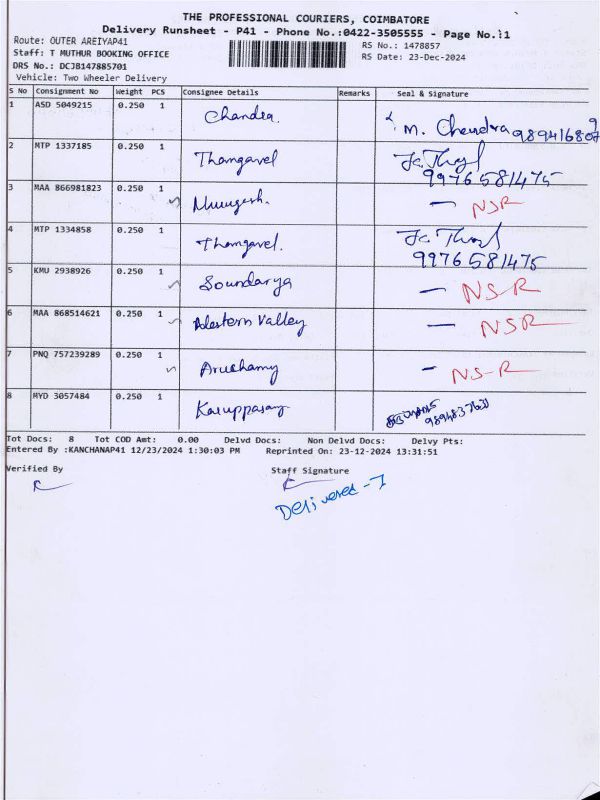 THE PROFESSIONAL COURIERS, COIMBATORE
Delivery Runsheet - P41 - Phone No.:0422-3505555 - Page No.:1
Route: OUTER AREIYAP41 RS No.: 1478857
Staff: T MUTHUR BOOKING OFFICE RS Date: 23-Dec-2024
DRS No.: DCJB147885701
Vehicle: Two Wheeler Delivery
S No Consignment No Weight PCS Consignee Details Remarks Seal & Signature
1 ASD 5049215 0.250 1 Chandra. M. Chendra
2 MTP 1337185 0.250 1 Thangavel
9976581475
3 MAA 866981823 0.250 1 Murugesh. — NSR
4 MTP 1334858 0.250 1 Thangavel.
9976581475
5 KMU 2938926 0.250 1 Soundarya — NSR
6 MAA 868514621 0.250 1 Western Valley — NSR
7 PNQ 757239289 0.250 1 Aruchamy - NS-R
8 MYD 3057484 0.250 1 Karuppasamy
Tot Docs: 8 Tot COD Amt: 0.00 Delvd Docs: Non Delvd Docs: Delvy Pts:
Entered By :KANCHANAP41 12/23/2024 1:30:03 PM Reprinted On: 23-12-2024 13:31:51
Verified By Staff Signature
Delivered - 7